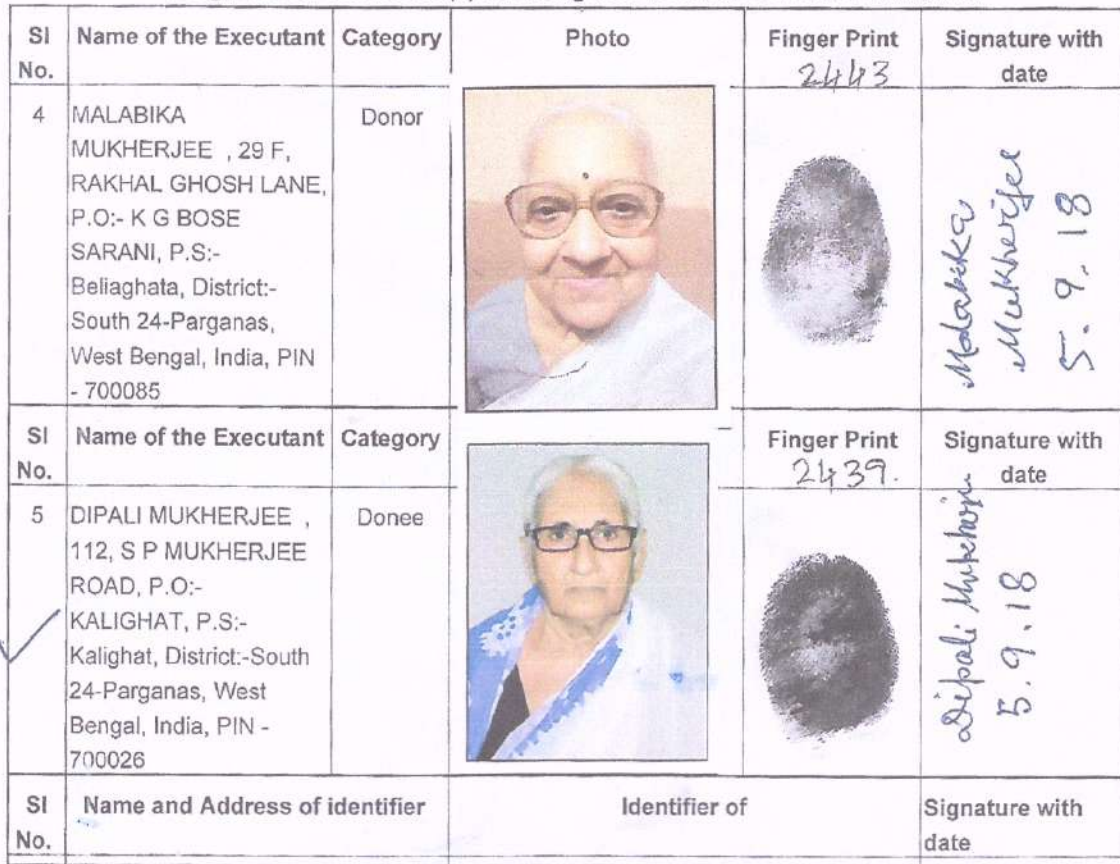 Sl No. Name of the Executant Category Photo Finger Print Signature with date
2443
4 MALABIKA Donor
MUKHERJEE , 29 F,
RAKHAL GHOSH LANE,
P.O:- K G BOSE
SARANI, P.S:-
Beliaghata, District:-
South 24-Parganas,
West Bengal, India, PIN
- 700085
Malabika
Mukherjee
5. 9. 18
Sl No. Name of the Executant Category Finger Print Signature with date
2439.
5 DIPALI MUKHERJEE , Donee
112, S P MUKHERJEE
ROAD, P.O:-
KALIGHAT, P.S:-
Kalighat, District:-South
24-Parganas, West
Bengal, India, PIN -
700026
Dipali Mukherjee
5.9.18
Sl No. Name and Address of identifier Identifier of Signature with date